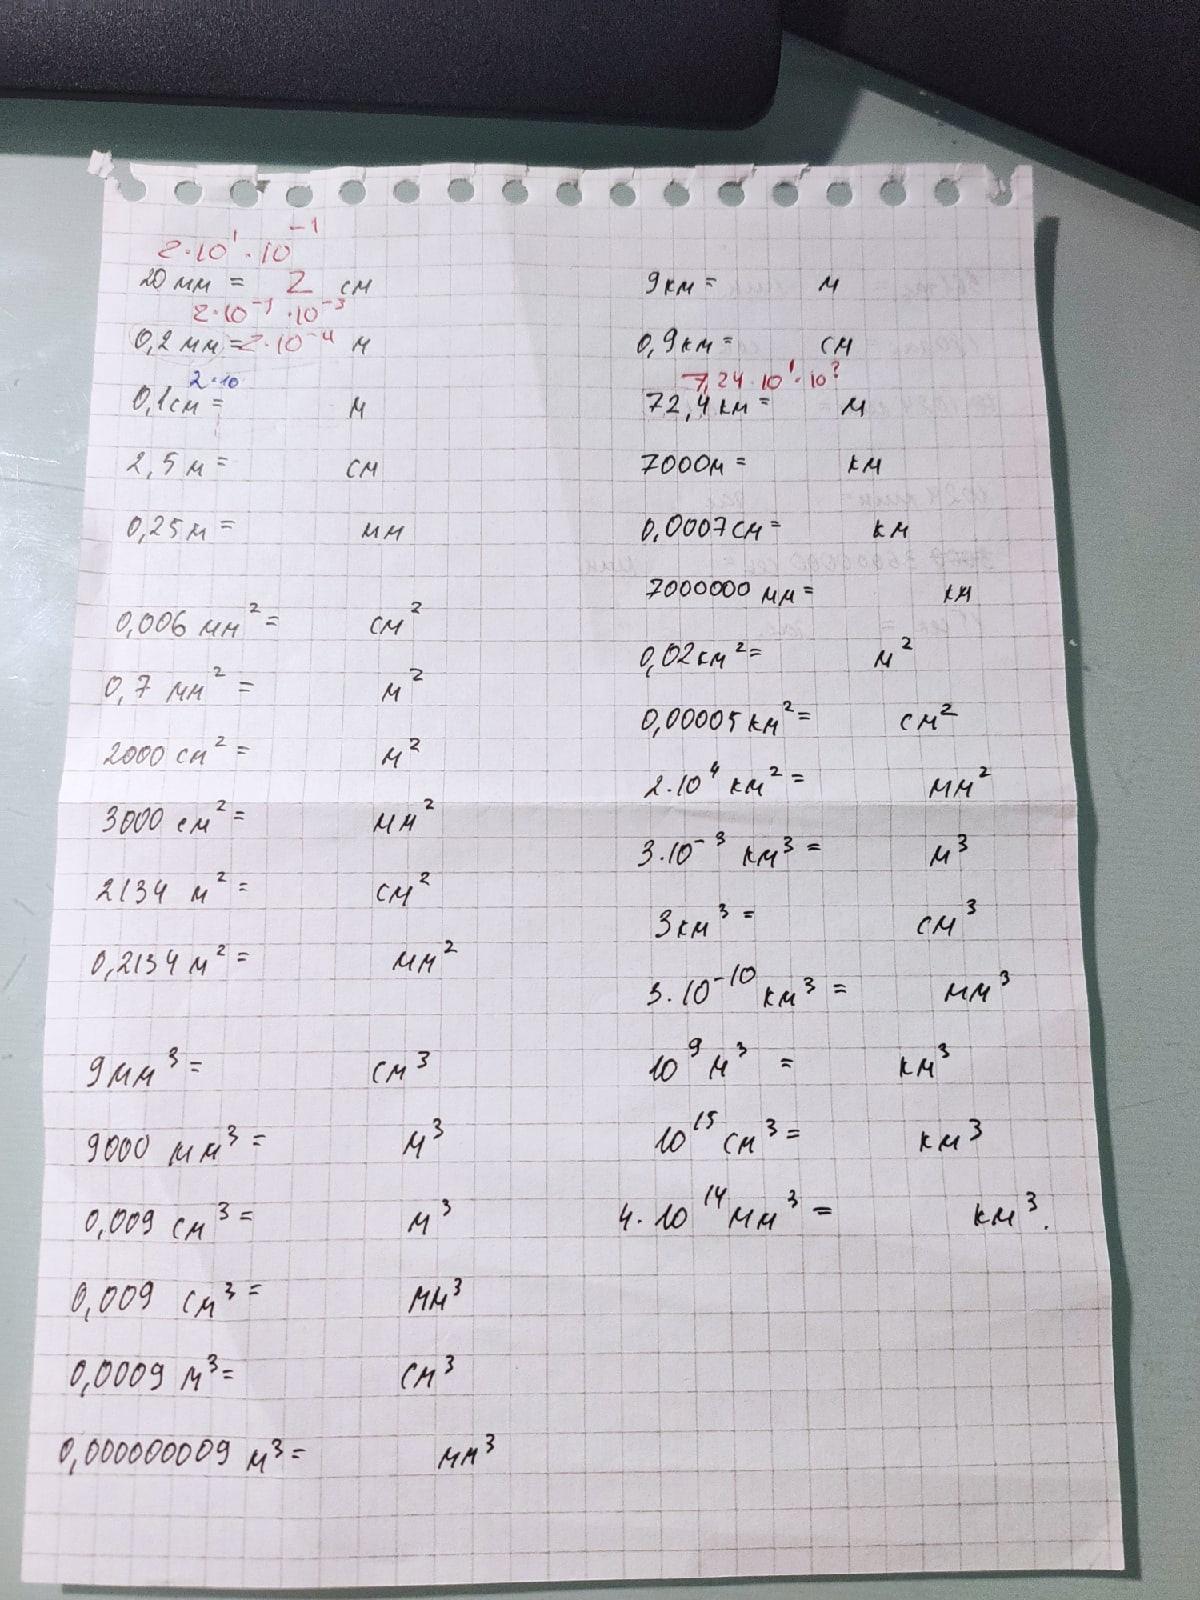 2·10¹·10⁻¹
20 мм = 2 см
2·10⁻¹·10⁻³
0,2 мм = 2·10⁻⁴ м
2·10
0,1 см = м
2,5 м = см
0,25 м = мм
0,006 мм² = см²
0,7 мм² = м²
2000 см² = м²
3000 см² = мм²
2134 м² = см²
0,2134 м² = мм²
9 мм³ = см³
9000 мм³ = м³
0,009 см³ = м³
0,009 см³ = мм³
0,0009 м³ = см³
0,000000009 м³ = мм³
9 км = м
0,9 км = см
7,24·10¹·10?
72,4 км = м
7000 м = км
0,0007 см = км
7000000 мм = км
0,02 км² = м²
0,00005 км² = см²
2·10⁴ км² = мм²
3·10⁻³ км³ = м³
3 км³ = см³
3·10⁻¹⁰ км³ = мм³
10⁹ м³ = км³
10¹⁵ см³ = км³
4·10¹⁴ мм³ = км³.